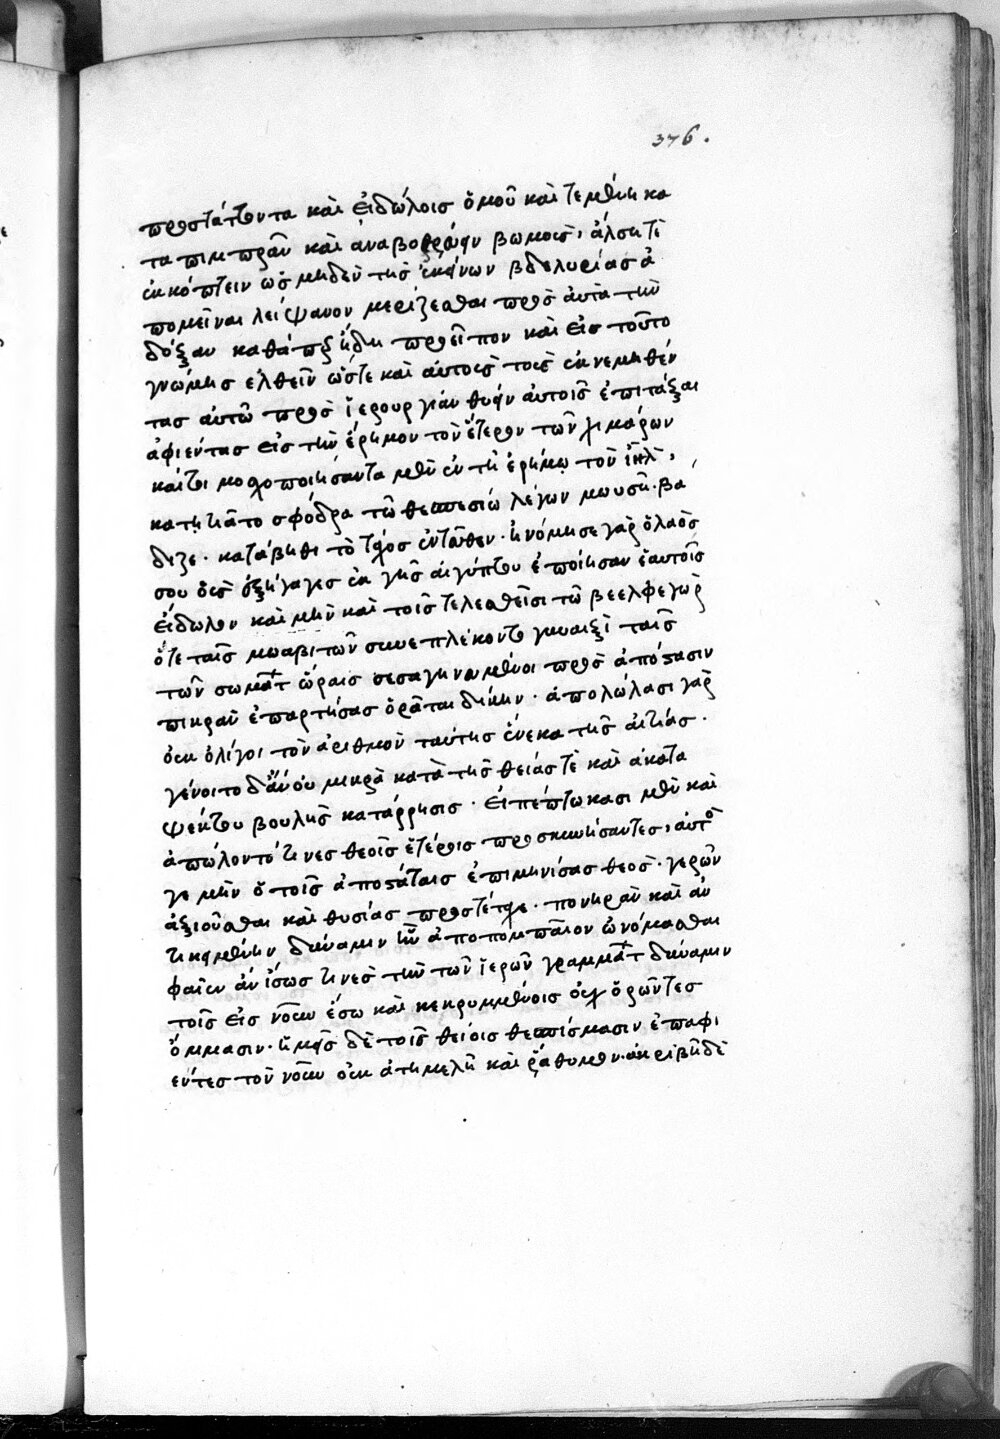 376.
προστάττοντα καὶ εἰδώλοις ὁμοῦ καὶ τεμένη κα
ταπιμπρᾶν καὶ ἀναβοθρεύειν βωμοὺς, ἄλση τὲ
ἐκκόπτειν ὡς μηδὲν τῆς ἐκείνων βδελυρίας ἀ
πομεῖναι λείψανον μερίζεσθαι πρὸς αὐτὰ τὴν
δόξαν καθάπερ ἤδη προεῖπον καὶ εἰς τοῦτο
γνώμης ἐλθεῖν ὥστε καὶ αὐτοὺς τοὺς ἐκνεμηθέν
τας αὐτῶ πρὸς ἱερουργίαν θύειν αὐτοῖς ἐπιτάξαι
ἀφιέντας εἰς τὴν ἔρημον τὸν ἕτερον τῶν χιμάρων
καίτοι μοσχοποιήσαντα μὲν ἐν τῆ ἐρήμω τὸν ἰηλ,
κατητιᾶτο σφόδρα τῶ θεσπεσίω λέγων μωυσῆ. βα
διζε. κατάβηθι τὸ τάχος ἐντεῦθεν. ἠνόμησε γὰρ ὁ λαός
σου οὓς ἐξήγαγες ἐκ γῆς αἰγύπτου ἐποίησαν ἑαυτοῖς
εἴδωλον καὶ μὴν καὶ τοῖς τελεσθεῖσι τῶ βεελφεγὼρ
ὅτε ταῖς μωαβιτῶν συνεπλέκοντο γυναιξὶ ταῖς
τῶν σωμάτ ὥραις σεσαγηνευμένοι πρὸς ἀπόστασιν
πικρὰν ἐπαρτήσας ὁρᾶται δίκην. ἀπολώλασι γὰρ
οὐκ ὀλίγοι τὸν ἀριθμὸν ταύτης ἕνεκα τῆς αἰτίας.
γένοιτο δ' ἂν οὐ μικρὰ κατὰ τῆς θείας τὲ καὶ ἀκατα
ψέκτου βουλῆς κατάρρησις. εἰ πεπτώκασι μὲν καὶ
ἀπώλοντό τινες θεοῖς ἑτέροις προσκυνήσαντες, αὐτὸ
γε μὴν ὁ τοῖς ἀποστάταις ἐπιμηνίσας θεὸς. γερῶν
ἀξιοῦσθαι καὶ θυσίας προστέταχε. πονηρὰν καὶ ἀν
τικειμένην δύναμιν ἣν ἀποπομπαῖον ὠνόμασθαι
φαῖεν ἂν ἴσως τινὲς τὴν τῶν ἱερῶν γραμμάτ δύναμιν
τοῖς εἰς νοῦν ἔσω καὶ κεκρυμμένοις οὐχ ὁρῶντες
ὄμμασιν. ἡμεῖς δὲ τοῖς θείοις θεσπίσμασιν ἐπαφι
έντες τὸν νοῦν οὐκ ἀτημελῆ καὶ ῥάθυμον. ἀκριβῆ δὲ